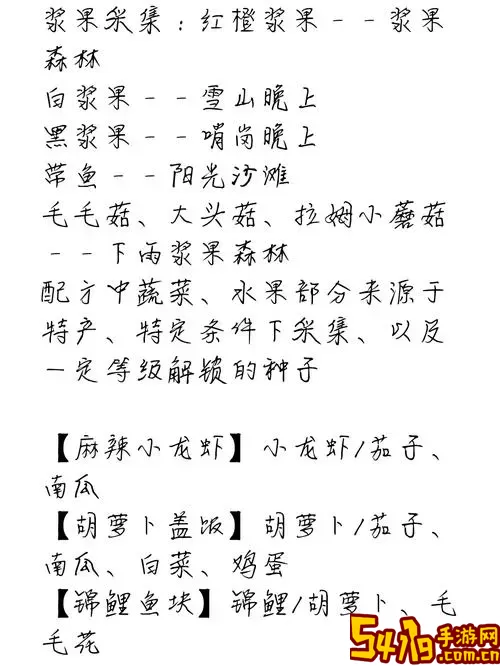 浆果采集：红橙浆果--浆果
森林
白浆果--雪山晚上
黑浆果--哨岗晚上
带鱼--阳光沙滩
毛毛菇、大头菇、拉姆小蘑菇
--下雨浆果森林
配方中蔬菜、水果部分来源于
特产、特定条件下采集、以及
一定等级解锁的种子
【麻辣小龙虾】小龙虾/茄子、
南瓜
【胡萝卜盖饭】胡萝卜/茄子、
南瓜、白菜、鸡蛋
【锦鲤鱼块】锦鲤/胡萝卜、毛
毛花
5419手游网
.com.cn